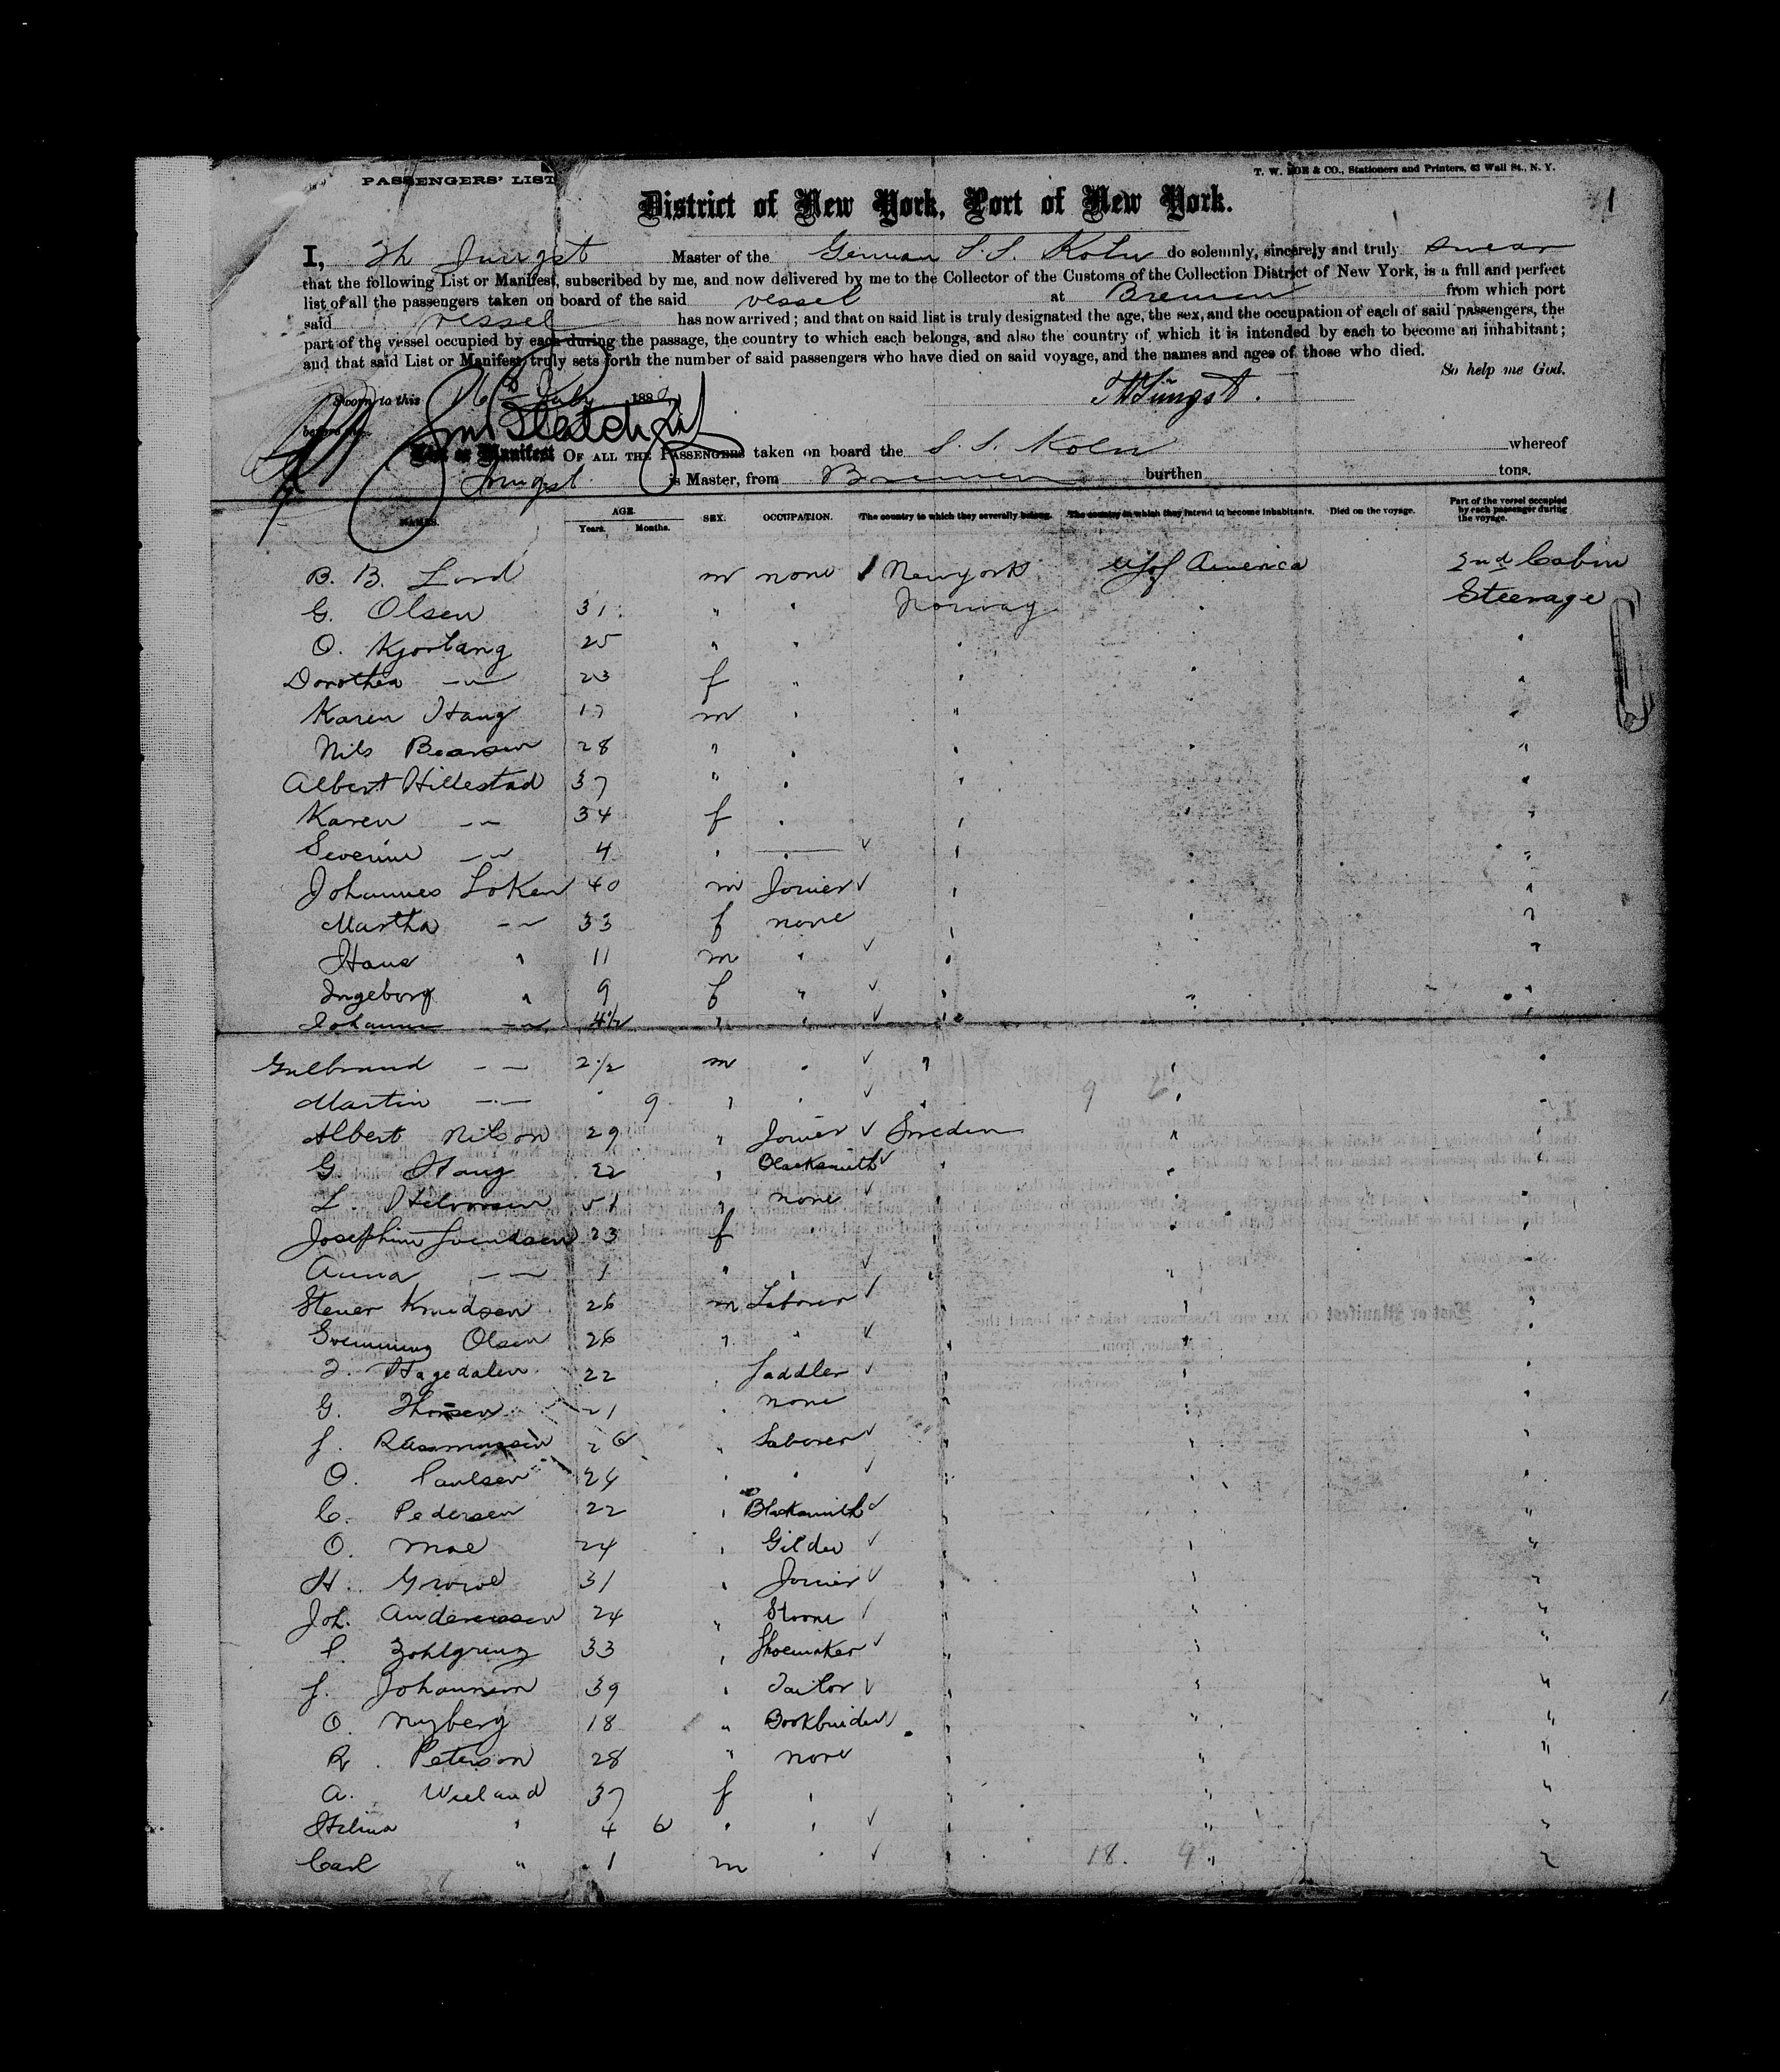 PASSENGERS' LIST
T. W. & CO., Stationers and Printers, 63 Wall St., N. Y.
1
District of New York, Port of New York.
I, Th Jungst Master of the German S.S. Koln do solemnly, sincerely and truly swear
that the following List or Manifest, subscribed by me, and now delivered by me to the Collector of the Customs of the Collection District of New York, is a full and perfect
list of all the passengers taken on board of the said vessel at Bremen from which port
said vessel has now arrived; and that on said list is truly designated the age, the sex, and the occupation of each of said passengers, the
part of the vessel occupied by each during the passage, the country to which each belongs, and also the country of which it is intended by each to become an inhabitant;
and that said List or Manifest truly sets forth the number of said passengers who have died on said voyage, and the names and ages of those who died.
So help me God.
Sworn to this 16 July 188
Th Jüngst.
before me
List or Manifest OF ALL THE PASSENGERS taken on board the S. S. Koln whereof
Jungst is Master, from Bremen burthen tons.
NAMES. AGE. Years. Months. SEX. OCCUPATION. The country to which they severally belong. The country in which they intend to become inhabitants. Died on the voyage. Part of the vessel occupied by each passenger during the voyage.
B. B. Lord m none New york U S of America 2nd Cabin
G. Olsen 31 " " Norway " Steerage
O. 25 " " " " "
Dorothea —"— 23 f " " " "
Karen Haug 17 m " " " "
Nils 28 " " " " "
Albert Hillestad 37 " " " " "
Karen —"— 34 f " " " "
Severine —"— 4 " " " " "
Johannes Loken 40 m Joiner " " "
Martha —"— 33 f none " " "
Hans " 11 m " " " "
Ingeborg " 9 f " " " "
Johanna —"— 4½ " " " " "
Gulbrand —"— 2½ m " " " "
Martin —"— 9 " " " 9 6 " "
Albert Nilson 29 " Joiner Sweden " "
G. Haug 22 " Blacksmith " " "
L. 51 " none " " "
Josephine Svendsen 23 f " " "
Anna —"— 1 " " " " "
Stener Knudsen 26 m Laborer " " "
Olsen 26 " " " " "
Hagedalen 22 " Saddler " " "
G. Thorsen 21 " none " " "
J. Rasmussen 26 " Laborer " " "
O. Paulsen 24 " " " " "
C. Pedersen 22 " Blacksmith " " "
O. Moe 24 " Gilder " " "
H. 31 " Joiner " " "
Joh. Anderssen 24 " " " "
P. 33 " Shoemaker " " "
J. Johannsen 39 " Tailor " " "
O. Nyberg 18 " Bookbinder " " "
R. Peterson 28 " none " " "
A. Wieland 37 f " " " "
Helina " 4 6 " " " " "
Carl " 1 m " " 18. 9 " "